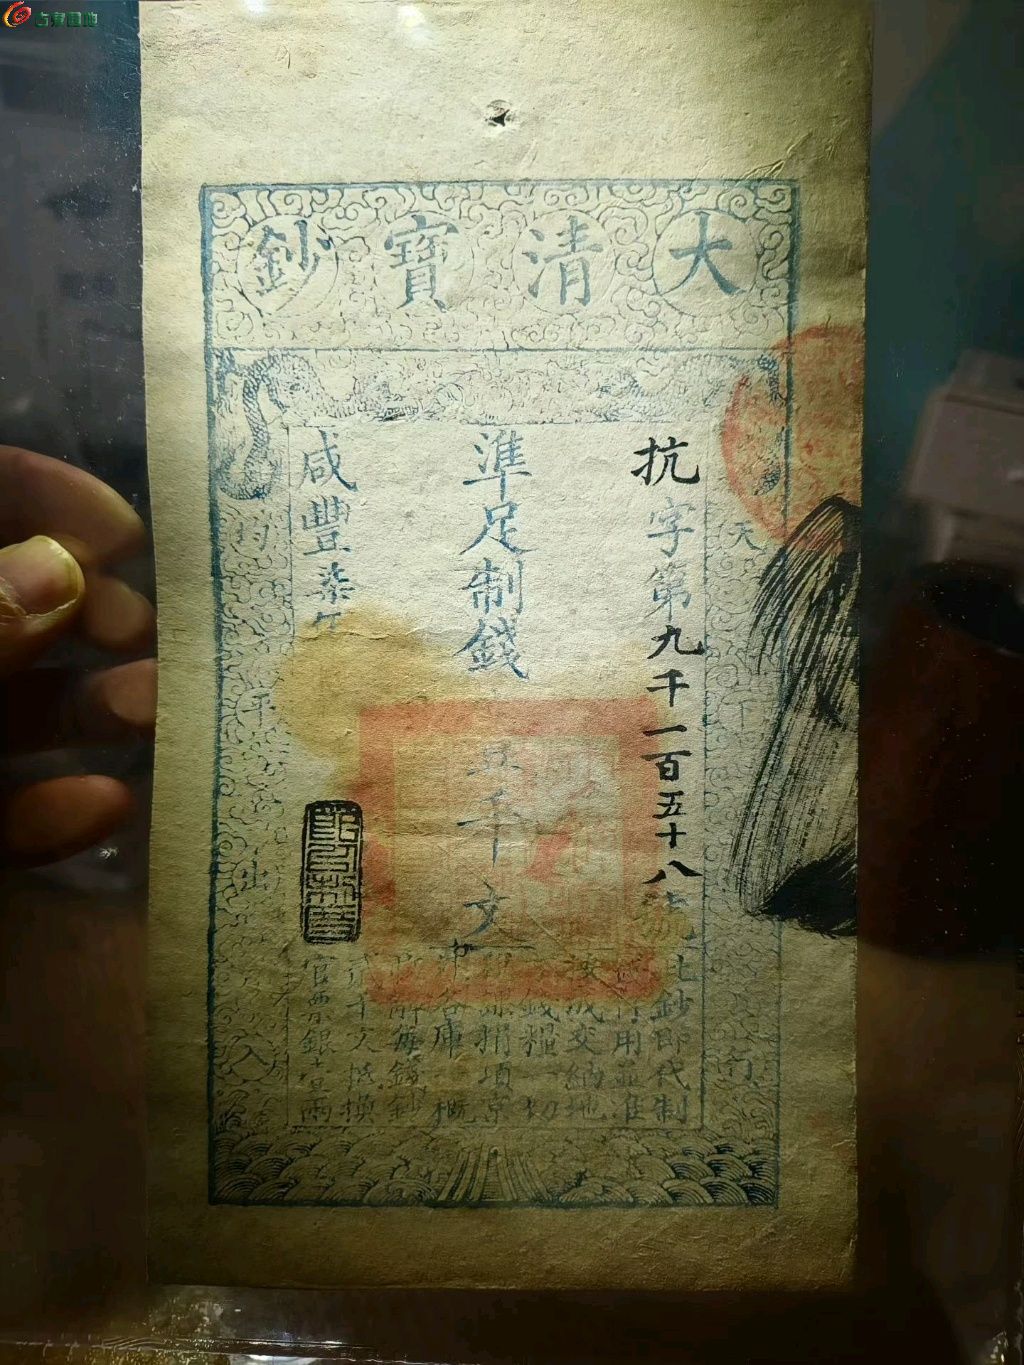 古泉园地
大清寶鈔
天下行
抗字第九千一百五十八號
準足制錢五千文
咸豐柒年
均平出入
此鈔即代制
行用並準
按成交納地
錢糧一切
課捐項京
外各庫一概
解每錢鈔
貳千文抵換
官票銀壹兩